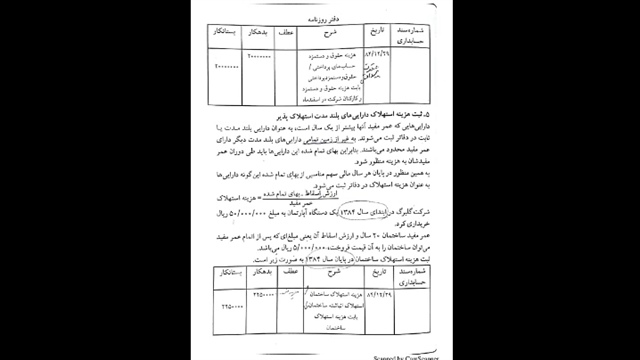 دفتر روزنامه
شماره سند حسابداری
تاریخ
شرح
عطف
بدهکار
بستانکار
۸۴/۱۲/۲۹
هزینه حقوق و دستمزد
حساب‌های پرداختنی /
حقوق و دستمزد پرداختنی
بابت هزینه حقوق و دستمزد
کارکنان شرکت در اسفندماه
۲۰۰۰۰۰۰۰
۲۰۰۰۰۰۰۰
۵. ثبت هزینه استهلاک دارایی‌های بلند مدت استهلاک پذیر
دارایی‌هایی که عمر مفید آنها بیشتر از یک سال است، به عنوان دارایی بلند مدت یا
ثابت در دفاتر ثبت می‌شوند. به غیر از زمین تمامی دارایی‌های بلند مدت دیگر دارای
عمر مفید محدود می‌باشند. بنابراین بهای تمام شده این دارایی‌ها باید طی دوران عمر
مفیدشان به هزینه منظور شود.
به همین منظور در پایان هر سال مالی سهم مناسبی از بهای تمام شده این گونه دارایی‌ها
به عنوان هزینه استهلاک در دفاتر ثبت می‌شود.
ارزش اسقاط - بهای تمام شده
هزینه استهلاک =
عمر مفید
شرکت گلبرگ در ابتدای سال ۱۳۸۴ یک دستگاه آپارتمان به مبلغ ۵۰/۰۰۰/۰۰۰ ریال
خریداری کرد.
عمر مفید ساختمان ۲۰ سال و ارزش اسقاط آن یعنی مبلغ‌ای که پس از اتمام عمر مفید
می‌توان ساختمان را به آن قیمت فروخت، ۵/۰۰۰/۰۰۰ ریال می‌باشد.
ثبت هزینه استهلاک ساختمان در پایان سال ۱۳۸۴ به صورت زیر است.
شماره سند حسابداری
تاریخ
شرح
عطف
بدهکار
بستانکار
۸۴/۱۲/۲۹
هزینه استهلاک ساختمان
استهلاک انباشته ساختمان
بابت هزینه استهلاک
ساختمان
۲۲۵۰۰۰۰
۲۲۵۰۰۰۰
Scanned by CamScanner